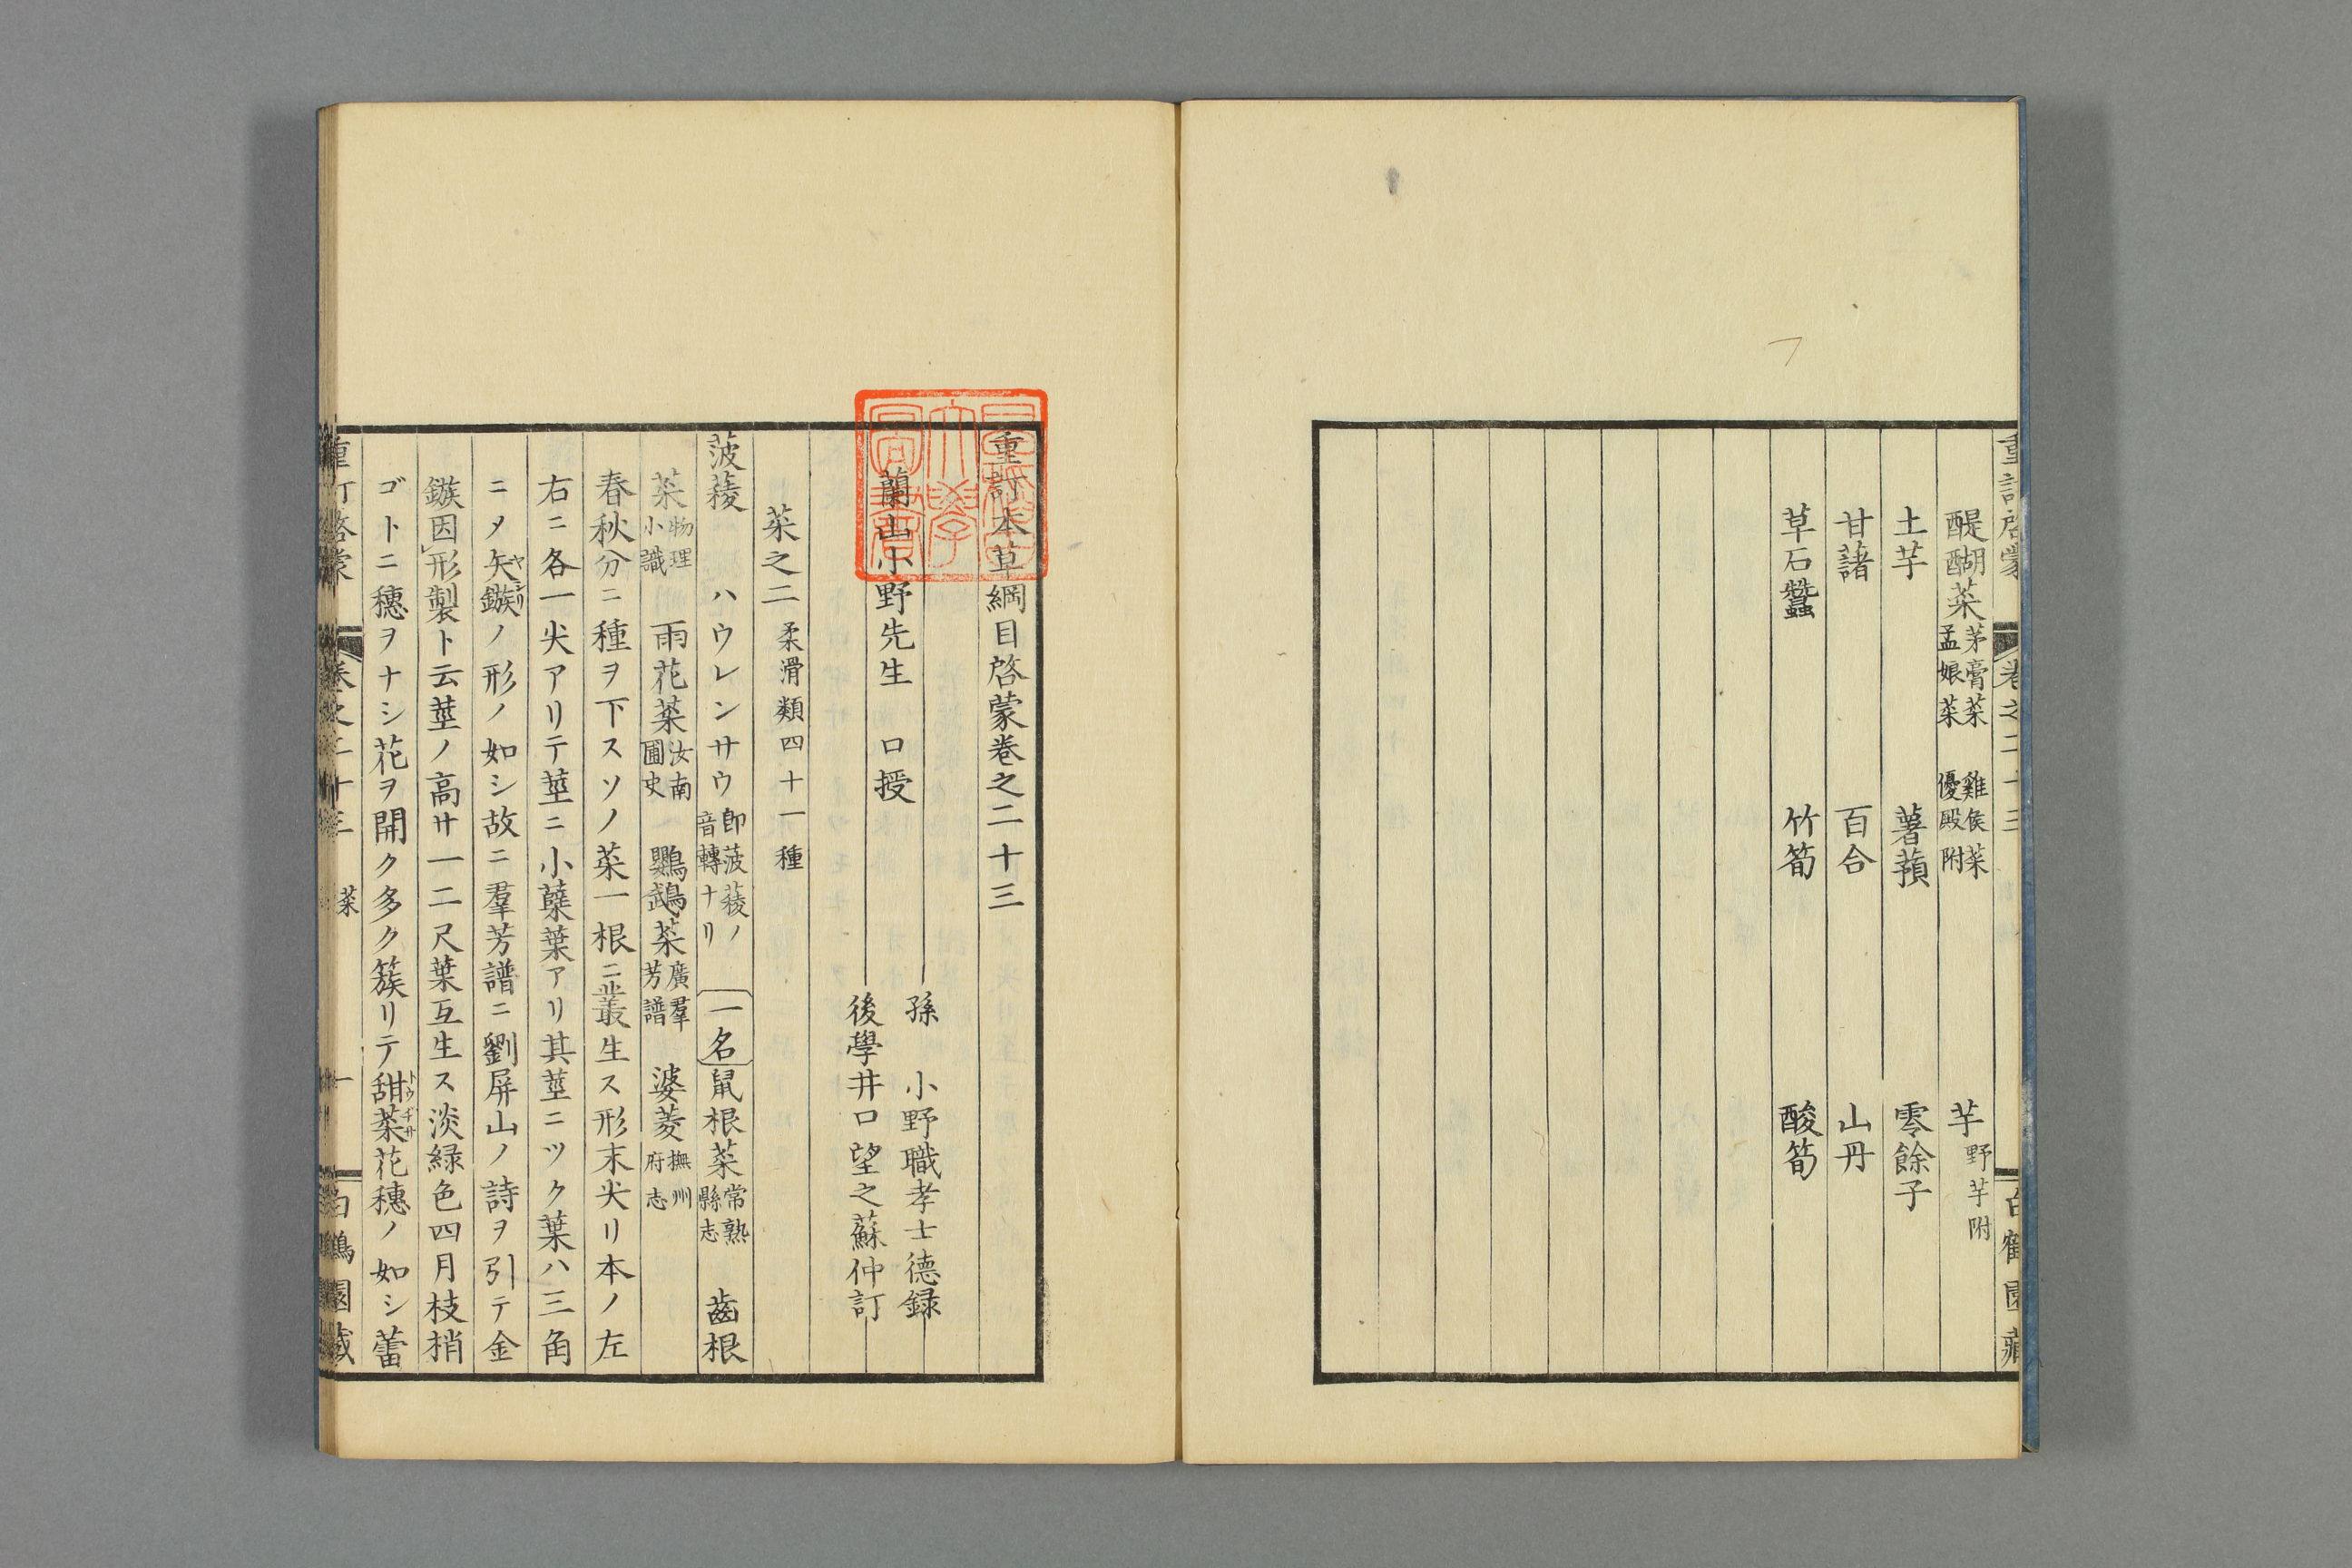 重訂啓蒙 卷之二十三 白鶴園藏
醍醐菜 茅膏菜 孟娘菜 雞侯菜 優殿附 芋 野芋附
土芋 薯蕷 零餘子
甘藷 百合 山丹
草石蠶 竹筍 酸筍
重訂本草綱目啓蒙卷之二十三
孫 小野職孝士德録
蘭山小野先生 口授
後學井口望之蘇仲訂
菜之二 柔滑類四十一種
菠薐 ハウレンサウ 即菠薐ノ音轉ナリ 一名 鼠根菜 常熟縣志 齒根
菜 物理小識 雨花菜 汝南圃史 鸚鵡菜 廣羣芳譜 婆菱 撫州府志
春秋分ニ種ヲ下スソノ菜一根ニ叢生ス形末尖リ本ノ左
右ニ各一尖アリテ莖ニ小蘖葉アリ其莖ニツク葉ハ三角
ニメ矢鏃ノ形ノ如シ故ニ羣芳譜ニ劉屏山ノ詩ヲ引テ金
鏃因形製ト云莖ノ高サ一二尺葉互生ス淡緑色四月枝梢
ゴトニ穗ヲナシ花ヲ開ク多ク簇リテ甜菜花穗ノ如シ蕾
重訂啓蒙 卷之二十三 菜 一 白鶴園藏